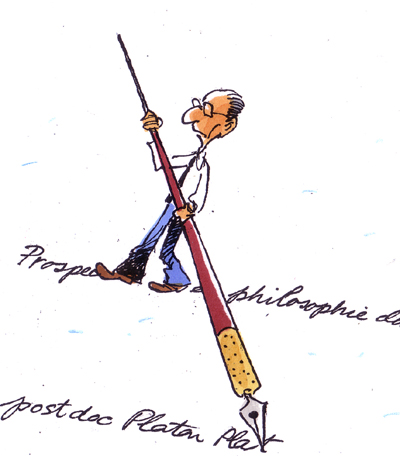 Prospec philosophie da
postdoc Platon Plat